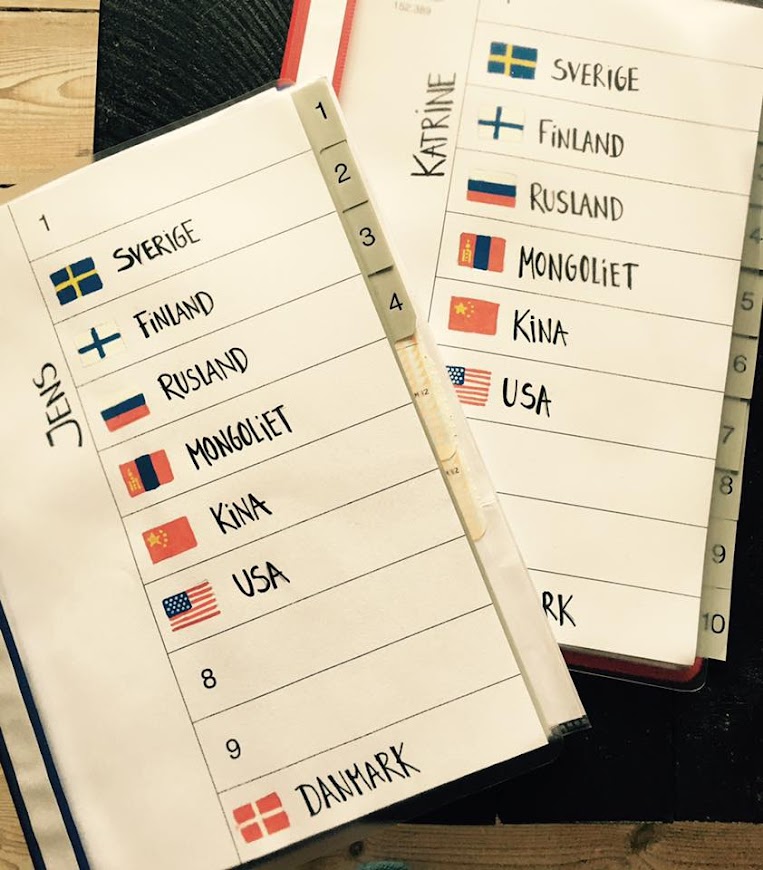 JENS
1
SVERIGE
FINLAND
RUSLAND
MONGOLIET
KINA
USA
8
9
DANMARK
1
2
3
4
KATRINE
SVERIGE
FINLAND
RUSLAND
MONGOLIET
KINA
USA
RK
4
5
6
7
8
9
10